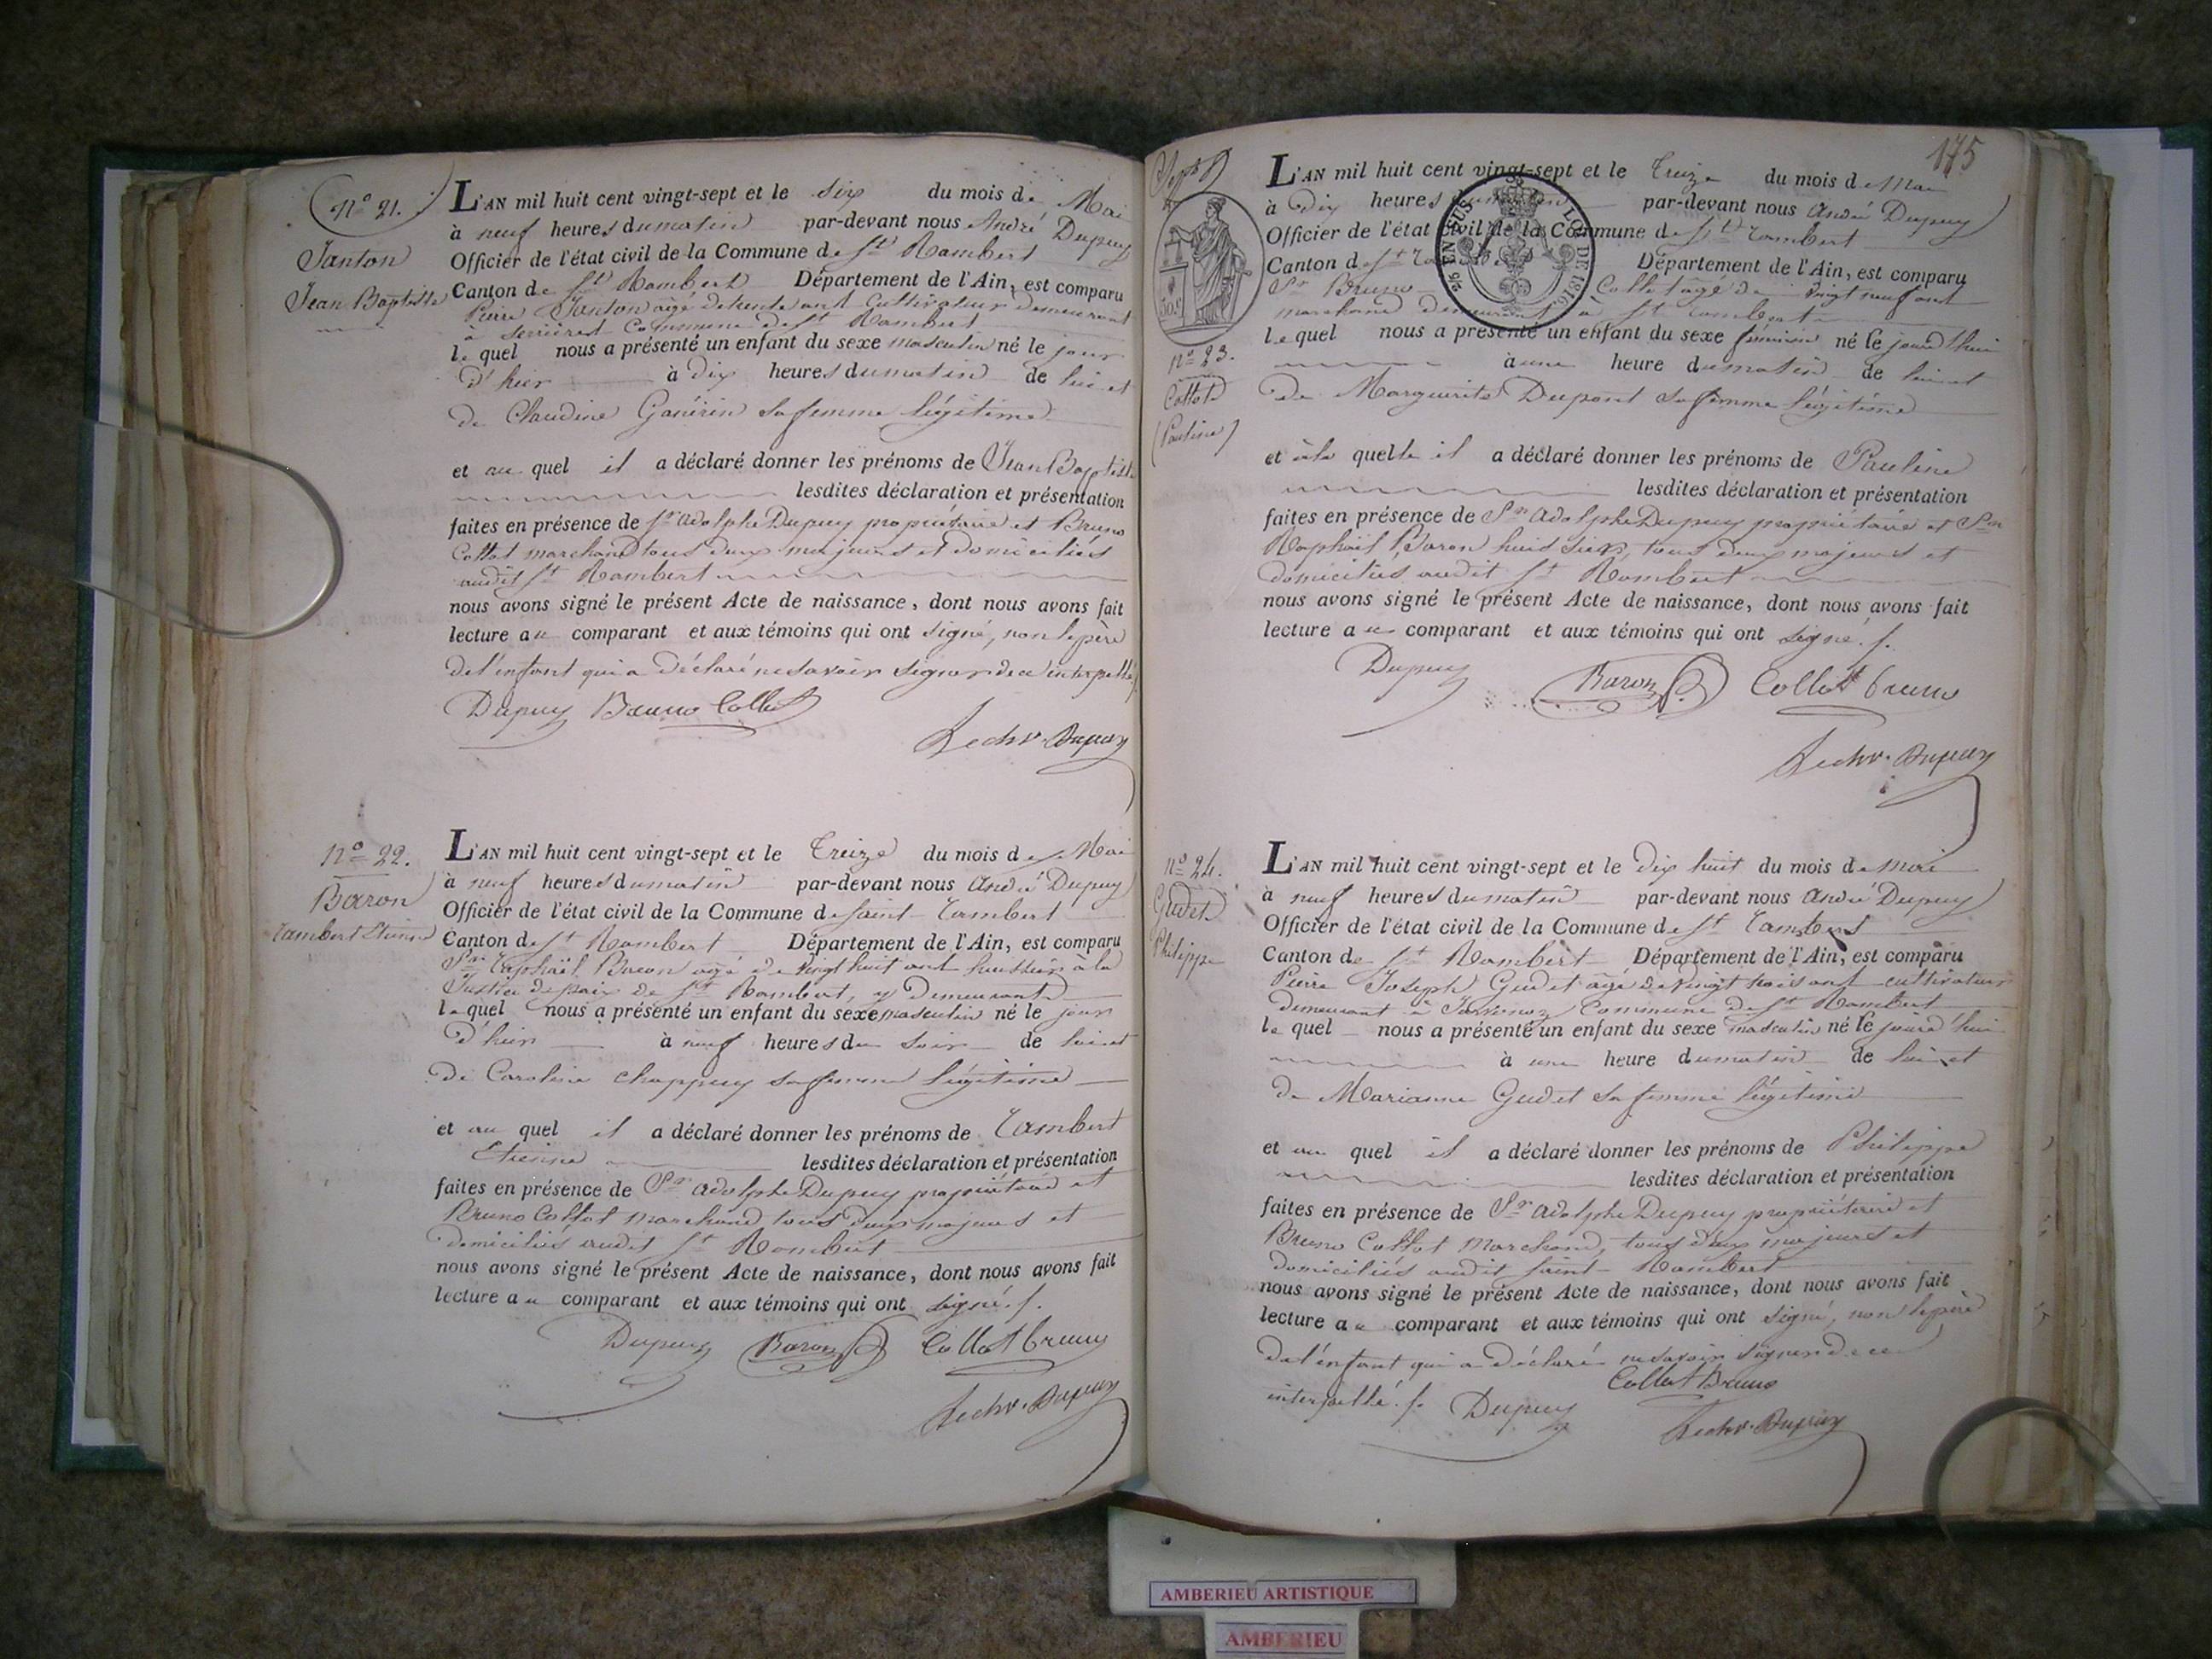 n° 21.
Janton
Jean Baptiste
L'AN mil huit cent vingt-sept et le six du mois de Mai
à neuf heures du matin par-devant nous André Dupuy
Officier de l'état civil de la Commune de St Rambert
Canton de St Rambert Département de l'Ain, est comparu
Pierre Janton agé de trente ans Cultivateur demeurant
à serrières Commune de St Rambert
lequel nous a présenté un enfant du sexe masculin né le jour
d'hier à dix heures du matin de lui et
de Claudine Ganérin sa femme légitime
et au quel il a déclaré donner les prénoms de Jean Baptiste
lesdites déclaration et présentation
faites en présence de Sr Adolphe Dupuy propriétaire et Bruno
Collot marchand tous deux majeurs et domiciliés
audit St Rambert
nous avons signé le présent Acte de naissance, dont nous avons fait
lecture au comparant et aux témoins qui ont signé, non le père
de l'enfant qui a déclaré ne savoir signer de ce interpellé
Dupuy Bruno Collot
Dupuy
n° 22.
Baron
Rambert Etienne
L'AN mil huit cent vingt-sept et le Treize du mois de Mai
à neuf heures du matin par-devant nous André Dupuy
Officier de l'état civil de la Commune de Saint-Rambert
Canton de St Rambert Département de l'Ain, est comparu
Sr Raphaël Baron agé de vingt huit ans huissier à la
Justice de paix de St Rambert, y demeurant
lequel nous a présenté un enfant du sexe masculin né le jour
d'hier à neuf heures du soir de lui et
de Caroline Chappuy sa femme légitime
et au quel il a déclaré donner les prénoms de Rambert
Etienne lesdites déclaration et présentation
faites en présence de Sr Adolphe Dupuy propriétaire et
Bruno Collot marchand tous deux majeurs et
domiciliés audit St Rambert
nous avons signé le présent Acte de naissance, dont nous avons fait
lecture au comparant et aux témoins qui ont signé.
Dupuy Baron Collot bruno
Dupuy
175
30c
26 EN SUS LOI DE 1816
n° 23.
Collot
(Pauline)
L'AN mil huit cent vingt-sept et le Treize du mois de Mai
à Dix heures du matin par-devant nous André Dupuy
Officier de l'état civil de la Commune de St Rambert
Canton de St Rambert Département de l'Ain, est comparu
Sr Bruno Collot agé de vingt neuf ans
marchand demeurant à St Rambert
lequel nous a présenté un enfant du sexe féminin né le jourd'hui
à une heure du matin de lui et
de Marguerite Dupont sa femme légitime
et à la quelle il a déclaré donner les prénoms de Pauline
lesdites déclaration et présentation
faites en présence de Sr Adolphe Dupuy propriétaire et Sr
Raphaël Baron huissier, tous deux majeurs et
domiciliés audit St Rambert
nous avons signé le présent Acte de naissance, dont nous avons fait
lecture au comparant et aux témoins qui ont signé.
Dupuy Baron Collot bruno
Dupuy
n° 24.
Gudet
Philippe
L'AN mil huit cent vingt-sept et le dix huit du mois de mai
à neuf heures du matin par-devant nous André Dupuy
Officier de l'état civil de la Commune de St Rambert
Canton de St Rambert Département de l'Ain, est comparu
Pierre Joseph Gudet agé de vingt trois ans cultivateur
demeurant à Commune de St Rambert
lequel nous a présenté un enfant du sexe masculin né le jourd'hui
à une heure du matin de lui et
de Marianne Gudet sa femme légitime
et au quel il a déclaré donner les prénoms de Philippe
lesdites déclaration et présentation
faites en présence de Sr Adolphe Dupuy propriétaire et
Bruno Collot marchand, tous deux majeurs et
domiciliés audit saint-Rambert
nous avons signé le présent Acte de naissance, dont nous avons fait
lecture au comparant et aux témoins qui ont signé, non le père
de l'enfant qui a déclaré ne savoir signer de ce
interpellé. Dupuy Collot Bruno
Dupuy
AMBERIEU ARTISTIQUE
AMBERIEU